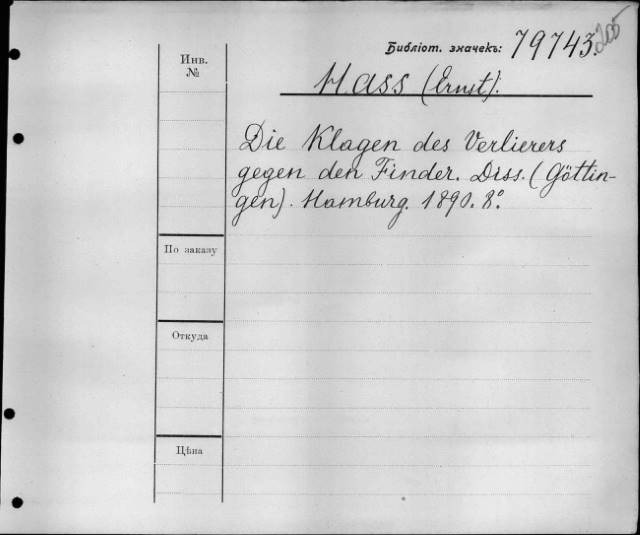 Библіот. значекъ: 79743. 205
Инв.
№
Hass (Ernst).
Die Klagen des Verlierers
gegen den Finder. Diss. (Göttin-
gen). Hamburg. 1890. 8°.
По заказу
Откуда
Цѣна